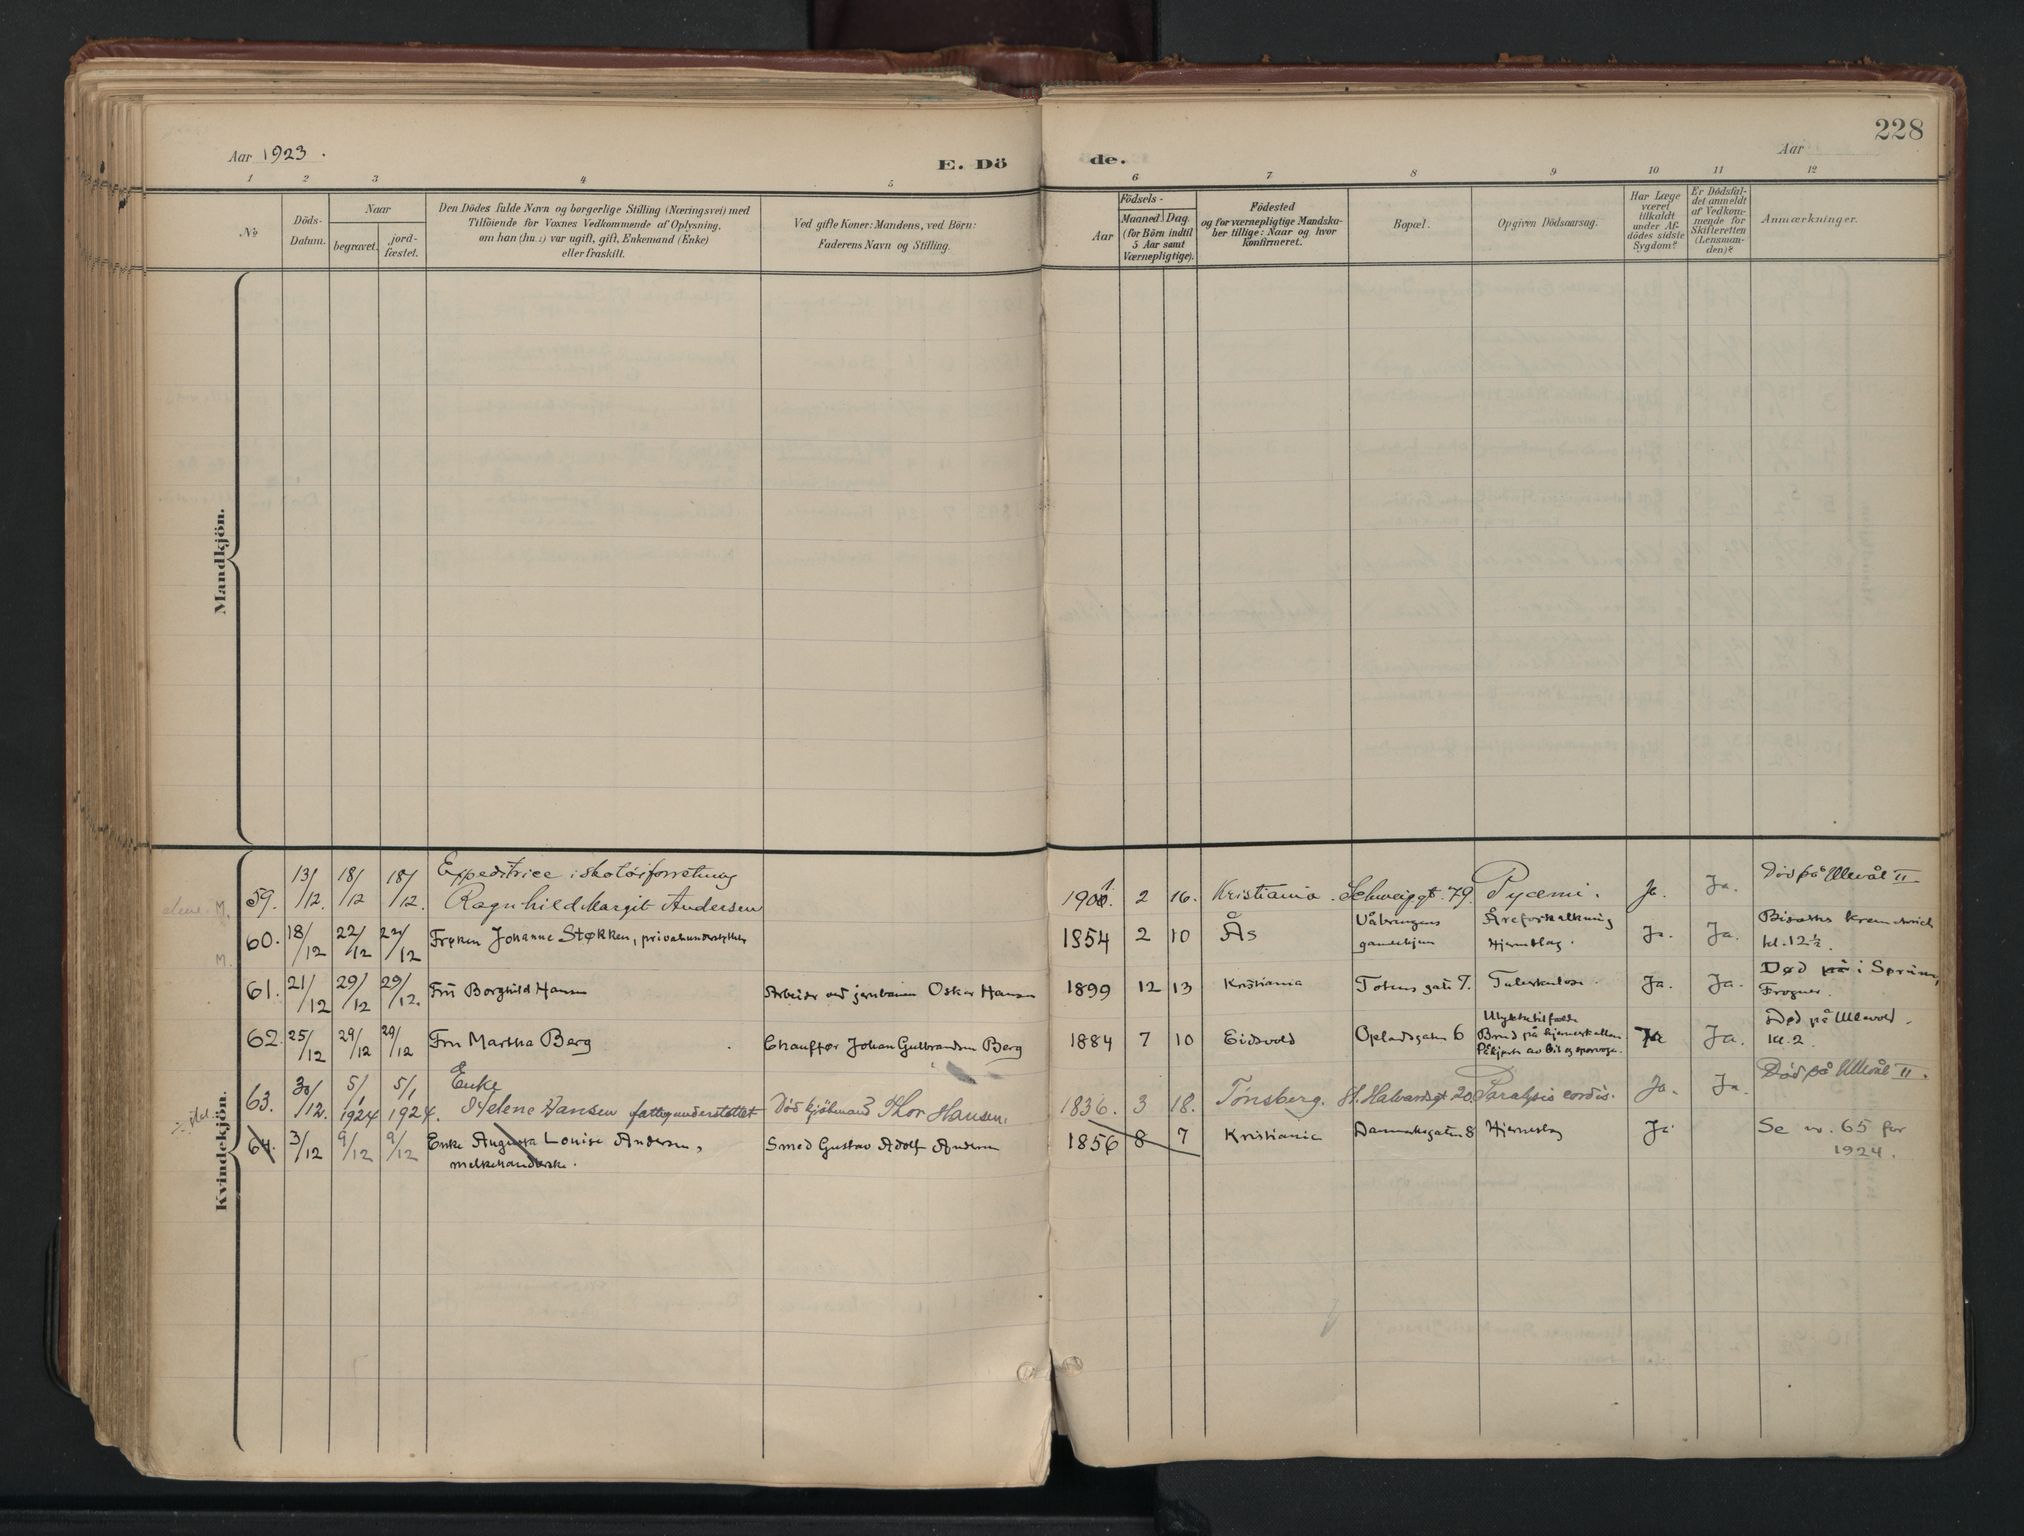 228
Aar 1923.
E. Dö
de.
Aar
1 2 3 4 5 6 7 8 9 10 11 12
No
Döds-Datum.
Naar
begravet.
jord-fæstet.
Den Dödes fulde Navn og borgerlige Stilling (Næringsvei) med
Tilföiende for Voxnes Vedkommende af Oplysning,
om han (hun) var ugift, gift, Enkemand (Enke)
eller fraskilt.
Ved gifte Koner: Mandens, ved Börn:
Faderens Navn og Stilling.
Födsels-
Aar
Maaned Dag
(for Börn indtil
5 Aar samt
Værnepligtige).
Födested
og for værnepligtige Mandska-
ber tillige: Naar og hvor
Konfirmeret.
Bopæl.
Opgiven Dödsaarsag.
Har Læge
været
tilkaldt
under Af-
dödes sidste
Sygdom?
Er Dödsfal-
det anmeldt
af Vedkom-
mende for
Skifteretten
(Lensman-
den)?
Anmærkninger.
Mandkjön.
Kvindekjön.
59. 13/12. 18/12 18/12. Expeditrice i skotöiforretning
Ragnhild Margit Andersen 1901 2 16. Kristiania. Schweigsgt. 79. Pyæmi. Ja. Ja. Död på Ullevål II
60. 18/12 22/12 22/12 Frøken Johanne Støkken, 1854 2 10 Ås Vålerengens
gamlehjem Åreforkalkning
Hjerneslag. Ja. Ja. kl. 12½.
61. 21/12 29/12 29/12. Fru Borghild Hansen Arbeider ved jernbanen Oskar Hansen 1899 12 13 Kristiania Totens gate 7. Tuberkulose. Ja. Ja. Død på i
Frogner.
62. 25/12 29/12 29/12 Fru Martha Berg Chauffør Johan Gulbrandsen Berg 1884 7 10 Eidsvold Oplandsgaten 6 Ulykkestilfælde
Brud på hjerneskallen
Påkjørt av bil og sporvogn. Ja Ja. Død på Ullevold.
kl. 2
63. 30/12. 5/1 1924 5/1 1924. Enke
Helene Hansen fattigunderstöttet Thor Hansen. 1836. 3 18. Tönsberg. St. Halvardsgt 20. Paralysis cordis. Ja. Ja. Död på Ullevål II.
64. 3/12 9/12 9/12 Enke Augusta Louise Andersen,
melkehandlerske. Smed Gustav Adolf Andersen 1856 8 7 Kristiania Danmarksgaten 8 Hjerneslag Ja Se nr. 65 for
1924.